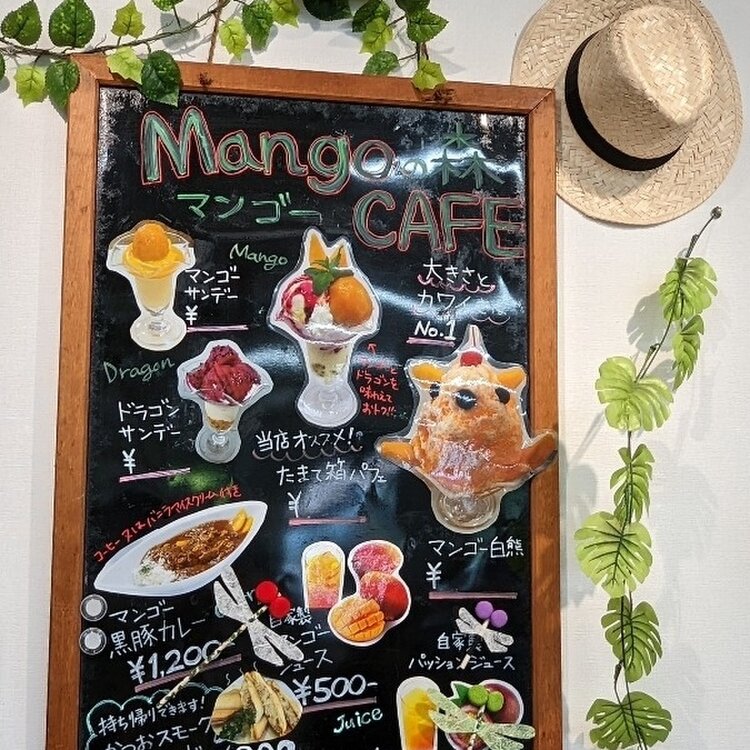 Mangoの森
マンゴー CAFE
Mango
マンゴー
サンデー
¥
大きさと
カワイ
No.1
Dragon
ドラゴン
サンデー
¥
ドラゴンを
味わえて
おトク!!
当店オススメ!
たまて箱パフェ
¥
マンゴー白熊
¥
コーヒー又はバニラアイスクリーム付き
マンゴー
黒豚カレー
¥1,200-
自家製
マンゴー
ジュース
¥500-
Juice
自家製
パッションジュース
持ち帰りできます!
かつおスモーク